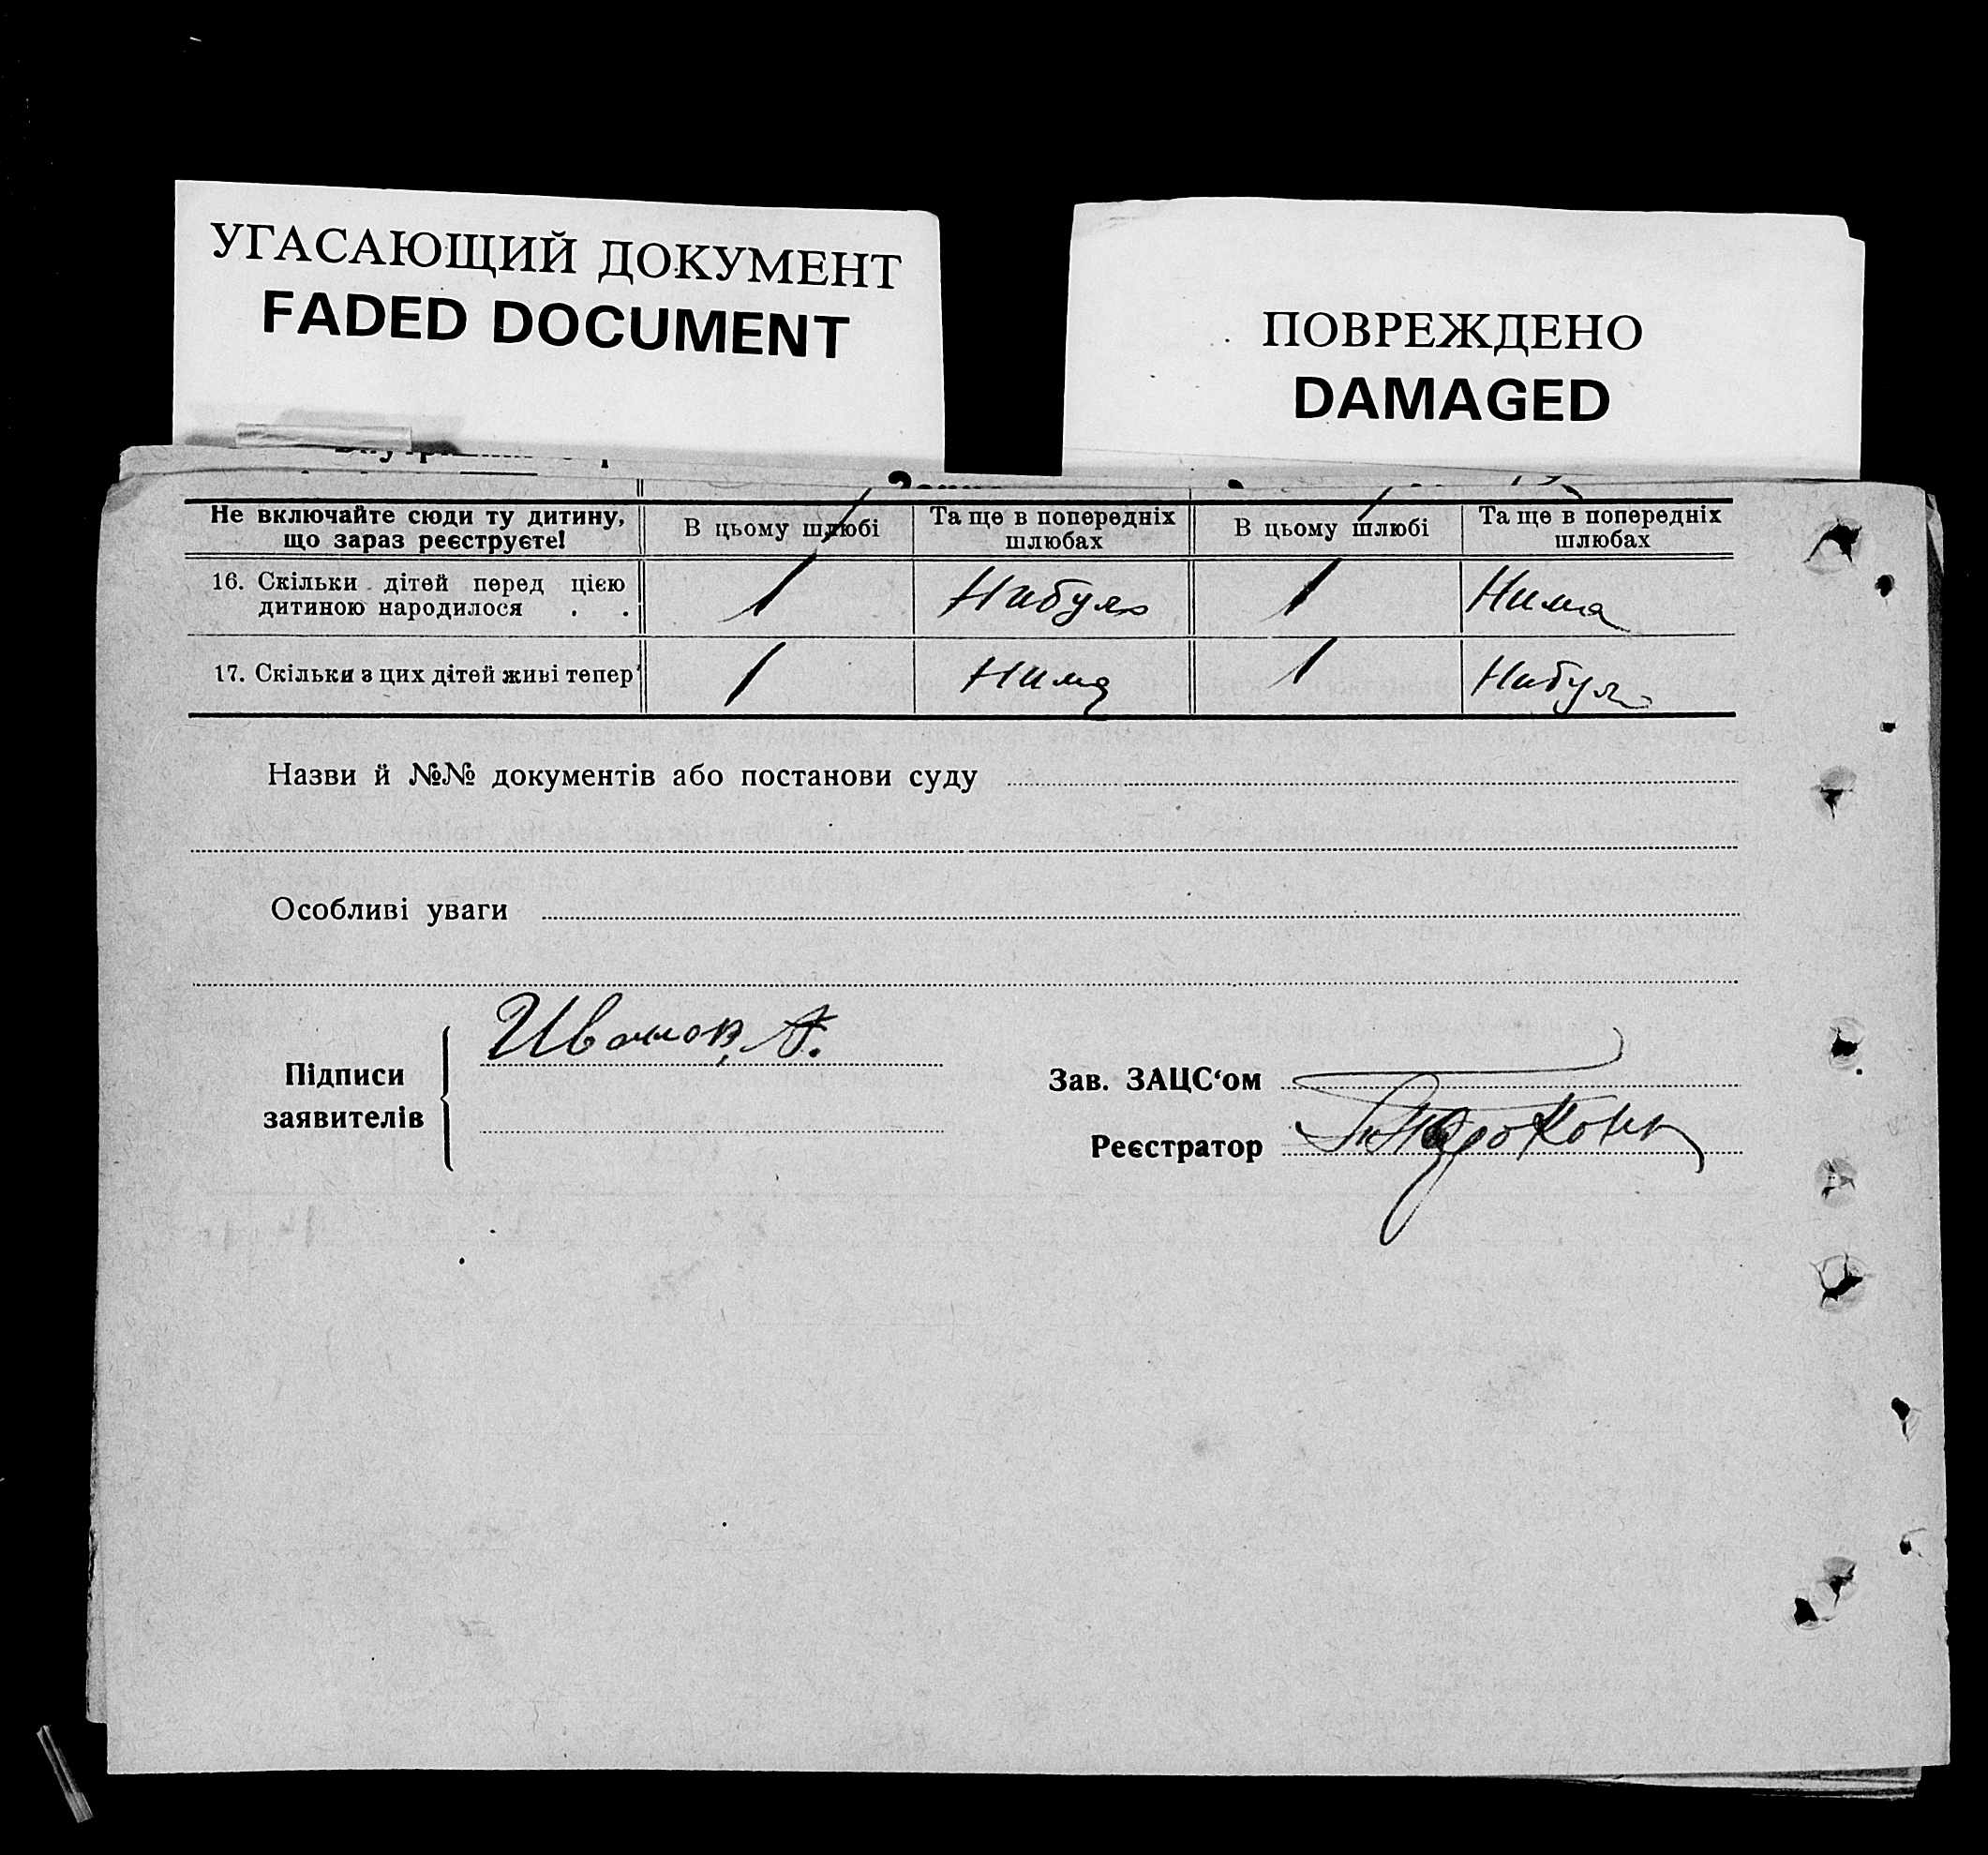 УГАСАЮЩИЙ ДОКУМЕНТ
FADED DOCUMENT
ПОВРЕЖДЕНО
DAMAGED
Не включайте сюди ту дитину, що зараз реєструєте!
В цьому шлюбі
Та ще в попередніх шлюбах
В цьому шлюбі
Та ще в попередніх шлюбах
16. Скільки дітей перед цією
дитиною народилося . .
1
Набуло
1
Нима
17. Скільки з цих дітей живі тепер
1
Нима
1
Набуло
Назви й №№ документів або постанови суду
Особливі уваги
Підписи
заявителів
Иванов, А.
Зав. ЗАЦС‘ом
Реєстратор